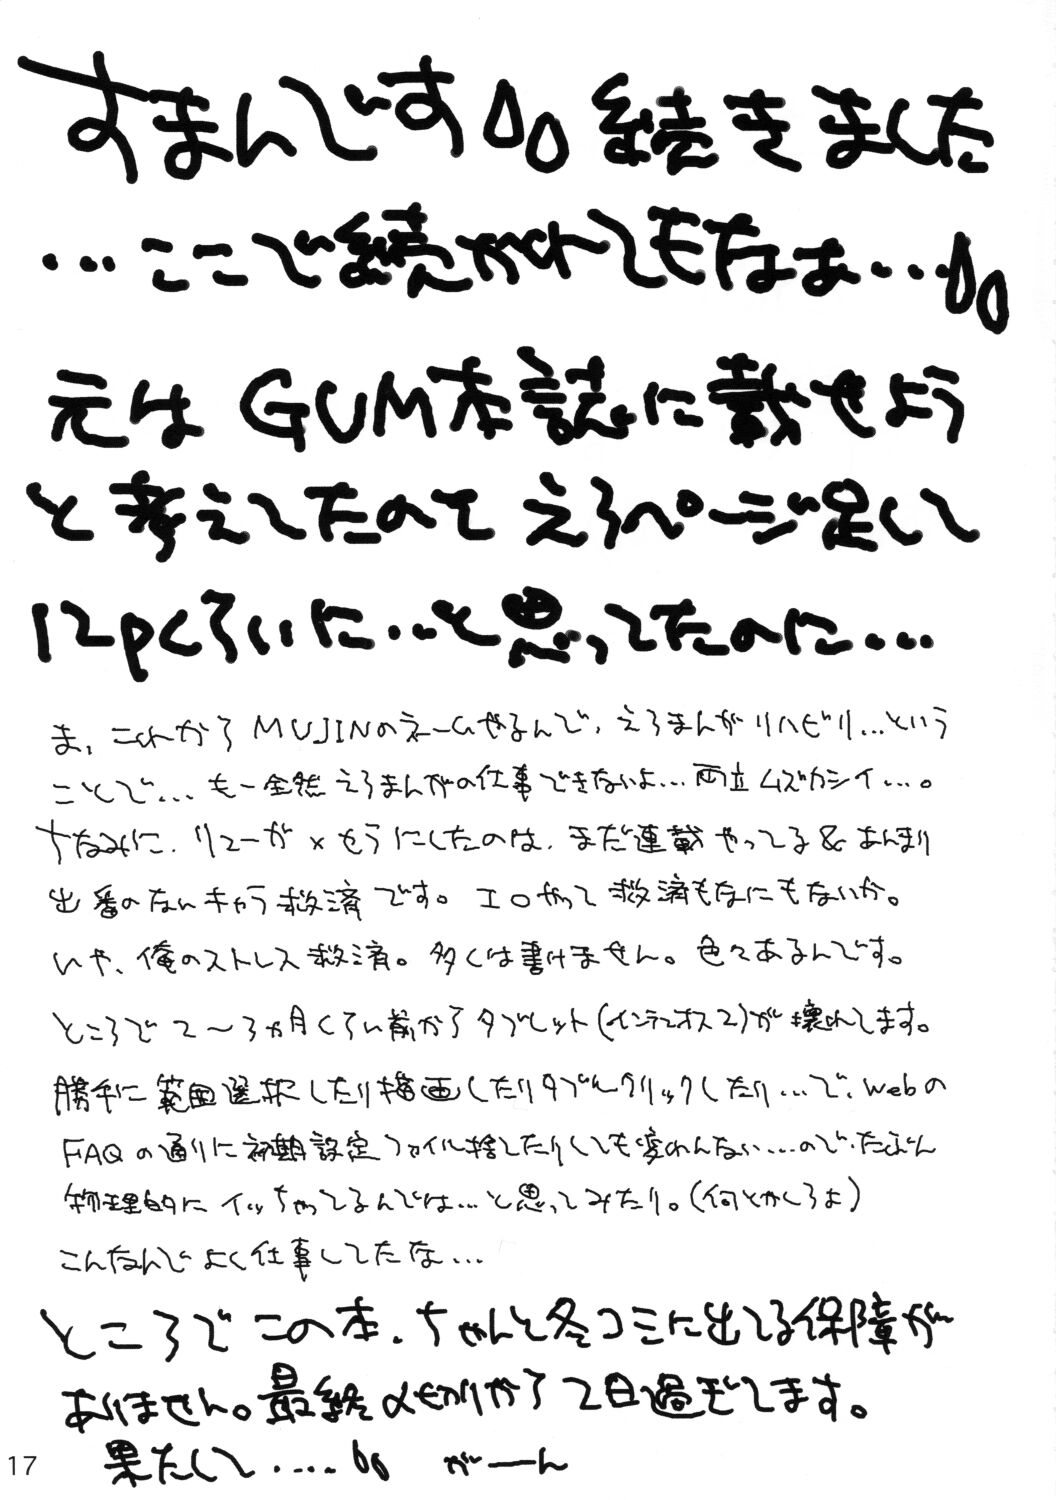 すまんです 続きました
…ここで続かれてもなぁ…
元は GUM本誌に載せよう
と考えてたので えろページ足して
12pくらいに…と思ってたのに…
ま、これから MUJINのネームやるんで、えろまんがリハビリ…という
ことで… もー全然 えろまんがの仕事できないよ… 両立ムズカシイ…。
ちなみに、リューガ×せりにしたのは、まだ連載やってる&あんまり
出番のないキャラ救済です。エロやって救済もなにもないか。
いや、俺のストレス救済。多くは書けません。色々あるんです。
ところで 2〜3ヵ月くらい前から タブレット(インテュオス2)が壊れてます。
勝手に範囲選択したり描画したりダブルクリックしたり…で、Webの
FAQの通りに初期設定ファイル捨てたりしても変わんない…ので、たぶん
物理的にイッちゃってるんでは…と思ってみたり。(何とかしろよ)
こんなんでよく仕事してたな…
ところで この本、ちゃんと冬コミに出てる保障が
ありません。最終〆切りから 2日過ぎてます。
果たして‥‥ がーーん
17